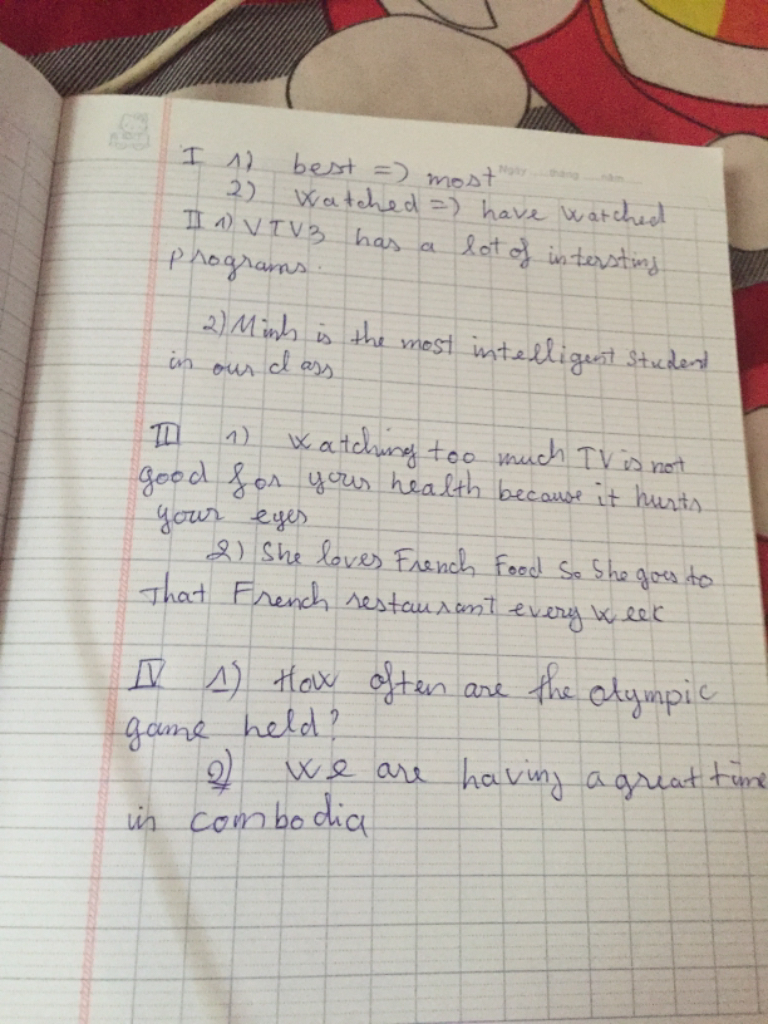 I 1) best => most
Ngày ..... tháng ..... năm .....
2) watched => have watched
II 1) VTV3 has a lot of intersting
programs.
2) Minh is the most intelligent student
in our class
III 1) watching too much TV is not
good for your health because it hurts
your eyes
2) She loves French Food So She goes to
That French restaurant every week
IV 1) How often are the olympic
game held?
2) we are having a great time
in combodia